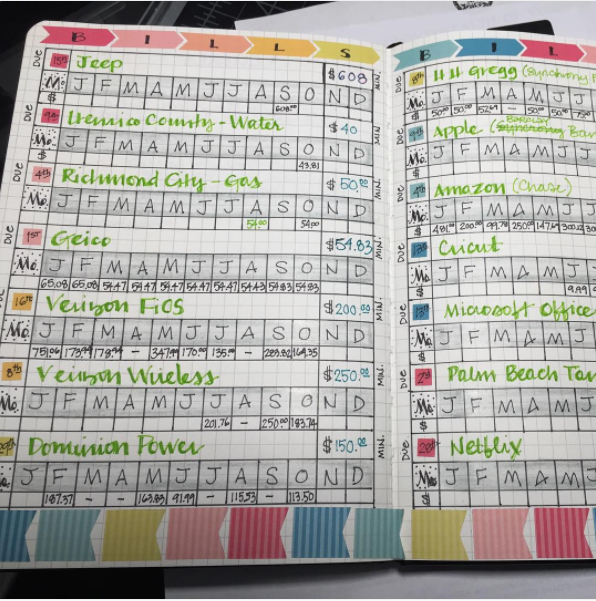 B I L L S
DUE 15th Jeep $608 MIN.
Mo. J F M A M J J A S O N D
$ 608.00
DUE 9th Henrico County - Water $40 MIN.
Mo. J F M A M J J A S O N D
$ 43.81
DUE 4th Richmond City - Gas $50.00 MIN.
Mo. J F M A M J J A S O N D
54.00 54.00
DUE 1st Geico $54.83 MIN.
Mo. J F M A M J J A S O N D
65.08 65.08 54.47 54.47 54.47 54.47 54.47 54.43 54.83 54.83
DUE 16th Verizon FiOS $200.00 MIN.
Mo. J F M A M J J A S O N D
- 170.00 135.00 - 203.82 164.35
8th Verizon Wireless $250.00 MIN.
Mo. J F M A M J J A S O N D
201.76 - 250.00 183.74
Dominion Power $150.00 MIN.
Mo. J F M A M J J A S O N D
187.37 - - 163.83 91.99 - 115.53 - 113.50
B I L
DUE HH Gregg (Synchrony
Mo. J F M A M J J
$ 50.00 50.00 52.69 - 50.00 50.00 75.00
DUE Apple (
Mo. J F M A M J J
$
DUE Amazon (Chase)
Mo. J F M A M J J
200.00 99.78 250.00 147.64
DUE 13th Cricut
Mo. J F M A M J
$ 9.99
DUE 13th Microsoft Office
Mo. J F M A M J
$
DUE Palm Beach Tan
Mo. J F M A M J
$
DUE Netflix
Mo. J F M A M J
$